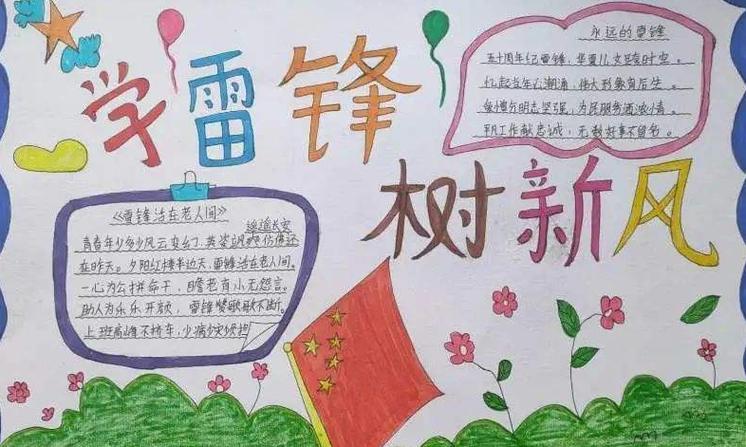 学雷锋
树新风
永远的雷锋
五十周年纪雷锋，华夏儿女
忆起当年心潮涌，伟大形象
爱憎分明志坚强，为民服务
平凡工作献忠诚，无数好事不留名。
《雷锋活在老人间》
遥遥长安
青春年少多少风云变幻，英姿飒爽仿佛还
在昨天。夕阳红楼半边天，雷锋活在老人间。
一心为公拼命干，瞻老育小无怨言。
助人为乐乐开颜，雷锋赞歌歌不断。
上班高峰不挤车，少病少灾少烦